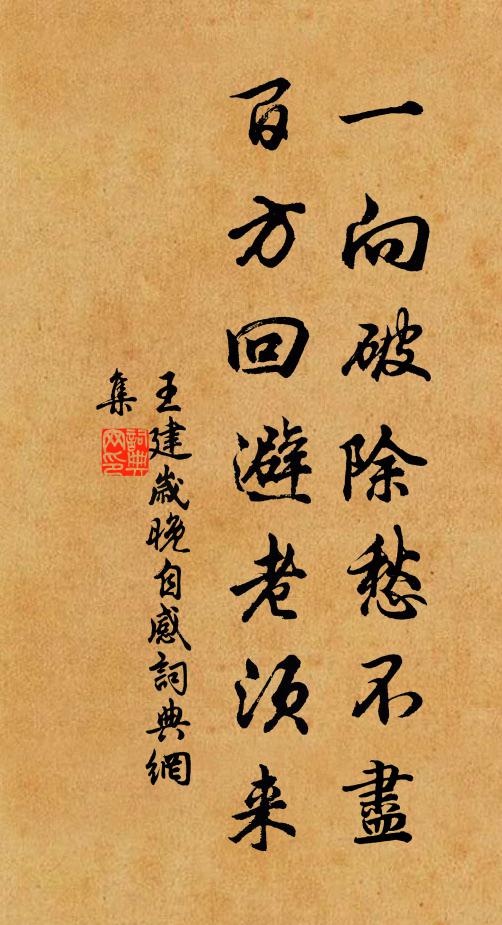 一向破除愁不盡
百方回避老須来
王建歲晚自感詞典網
集
詞典网印